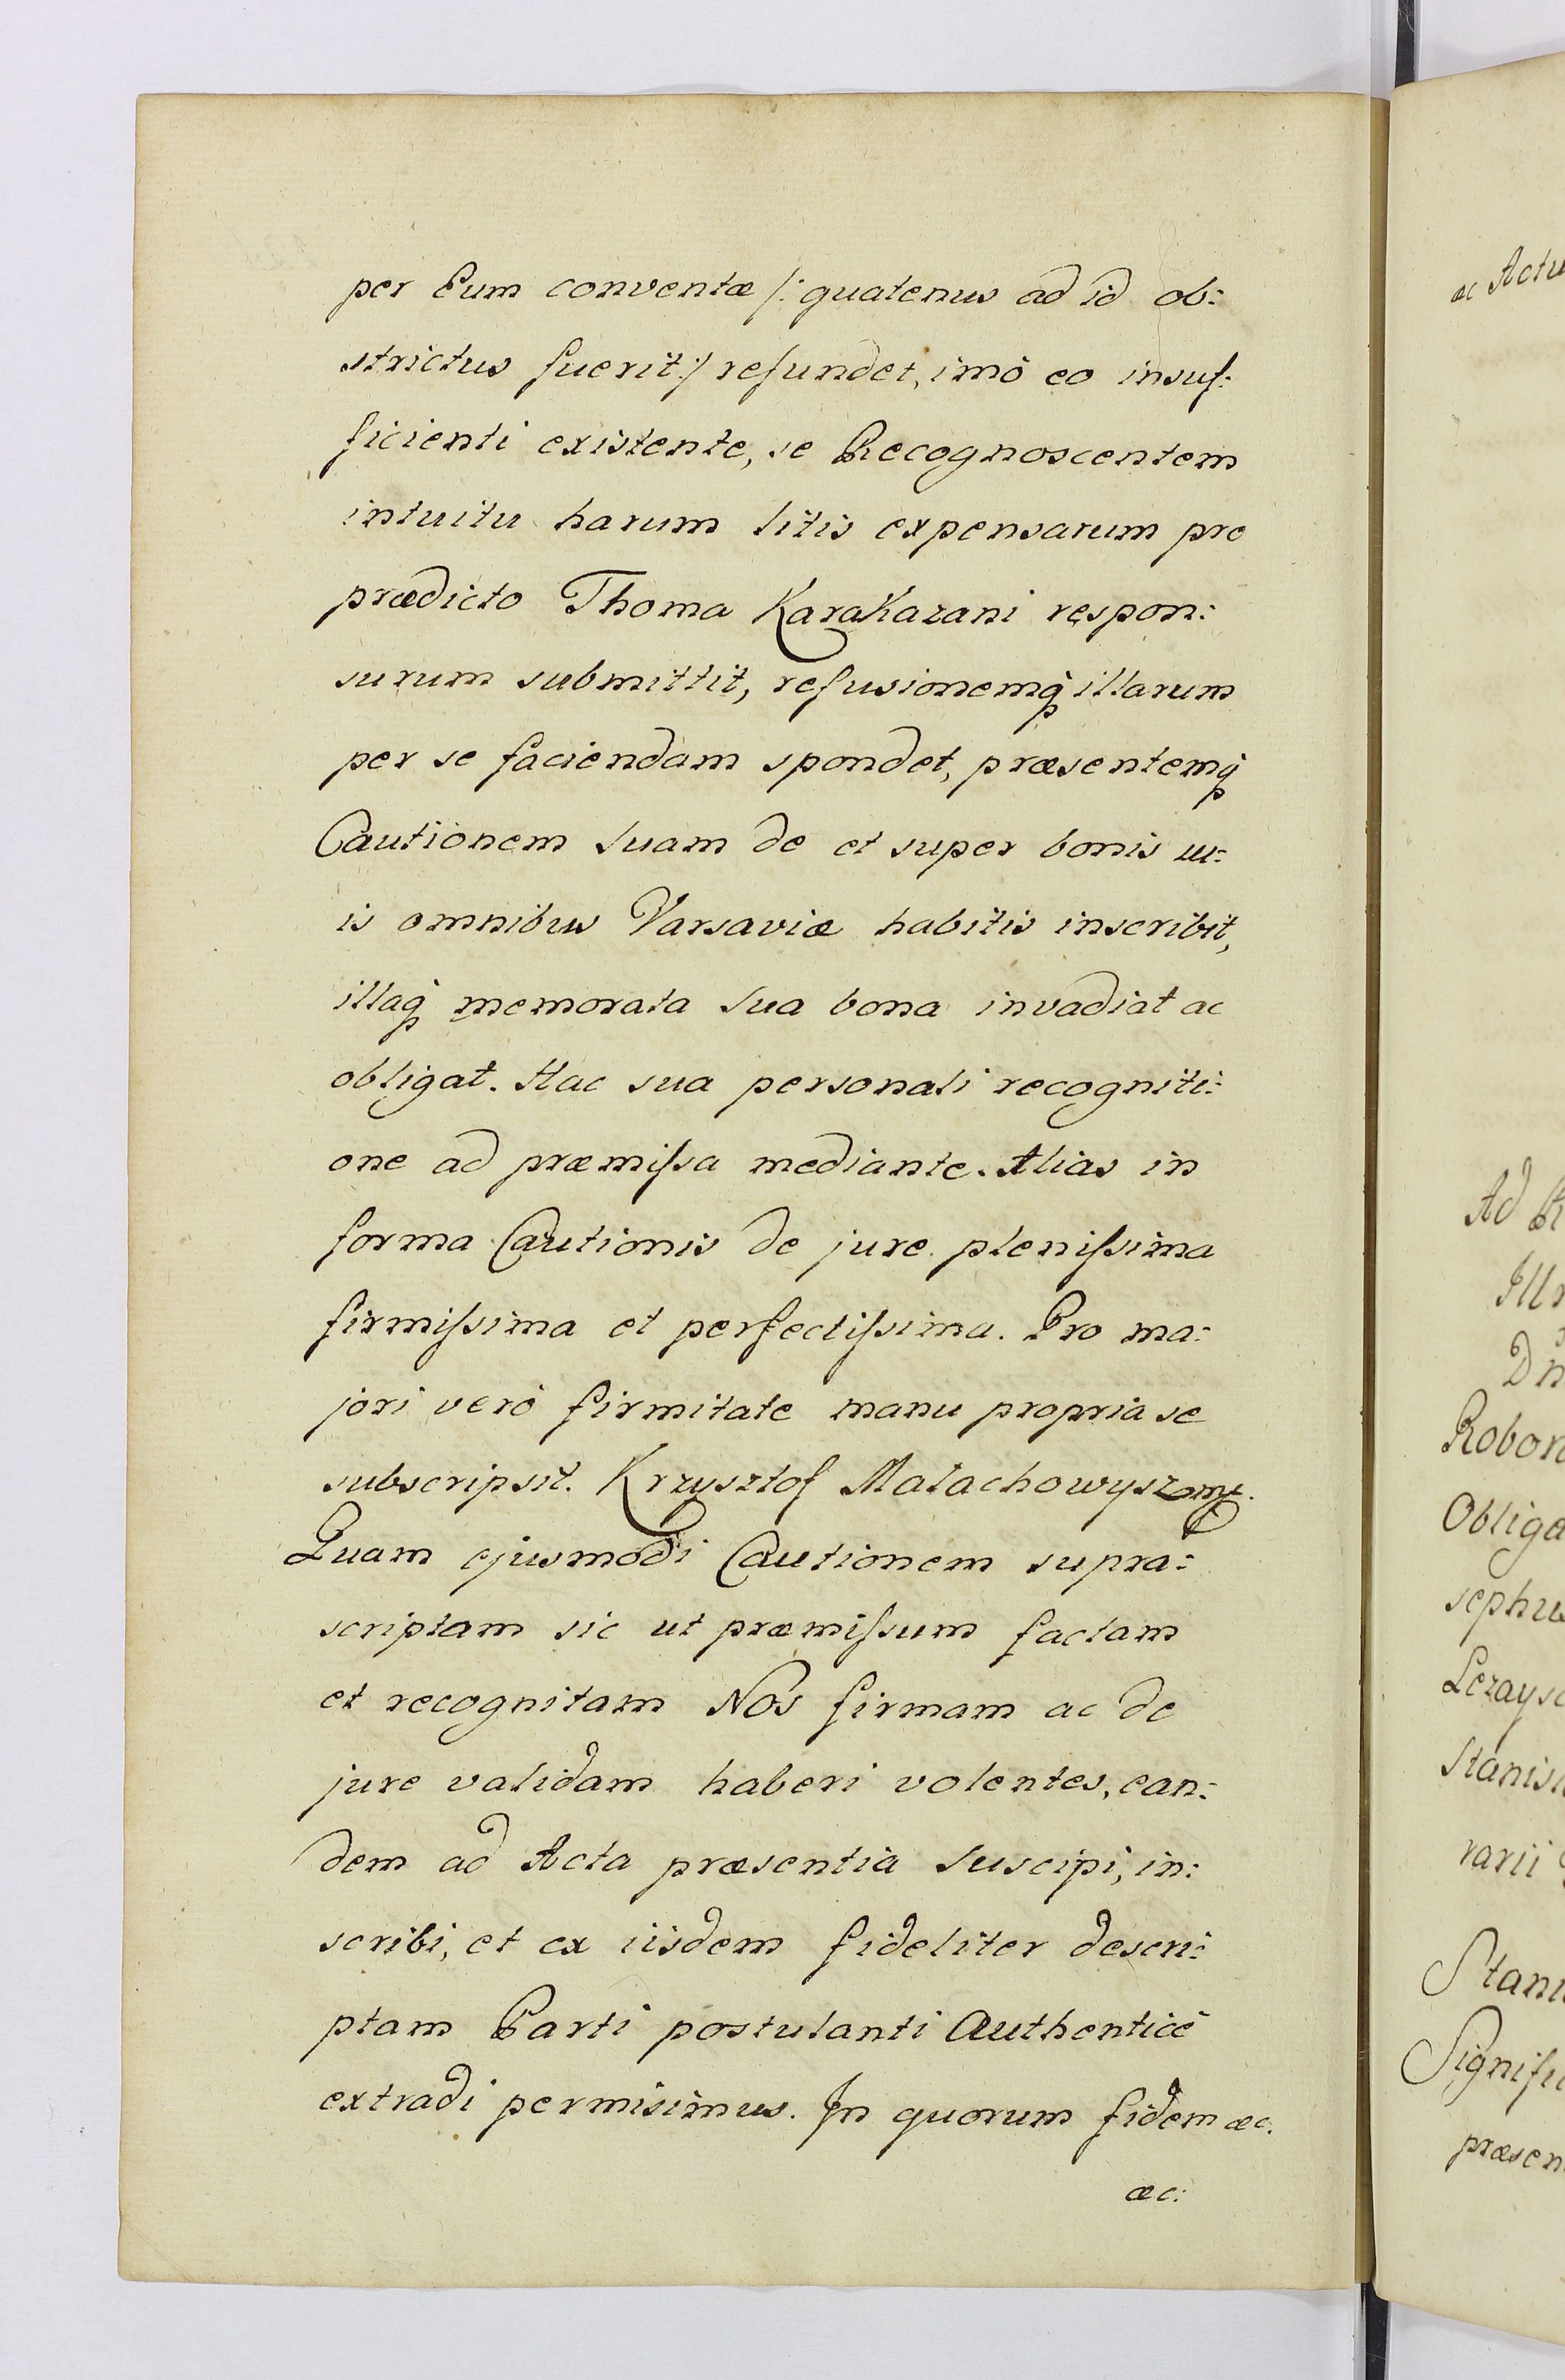 per Eum conventæ /: quatenus ad id ob:
strictus fuerit :/ refundet, imò eo insuf:
ficienti existente, se Recognoscentem
intuitu harum litis expensarum pro
prædicto Thoma KaraKazani respon:
surum submittit, refusionemq̀ illarum
per se faciendam spondet, præsentemq̀
Cautionem suam de et super bonis su:
is omnibus Varsaviæ habitis inscribit,
illaq̀ memorata sua bona invadiat ac
obligat. Hac sua personali recogniti:
one ad præmissa mediante. Alias in
forma Cautionis de jure plenissima
firmissima et perfectissima. Pro ma:
jori verò firmitate manu propria se
subscripsit. Krzysztof Małachowy
Quam ejusmodi Cautionem supra:
scriptam sic ut præmissum factam
et recognitam Nos firmam ac de
jure validam haberi volentes, ean:
dem ad Acta præsentia suscipi, in:
scribi, et ex iisdem fideliter descri:
ptam Parti postulanti Authenticè
extradi permisimus. In quorum fidem æc.
æc:
ac Actu
Ad R
Illr
Dn
Robor
Obliga
sephus
Lezays
Stanis
rarii
Stani
Signifi
præsen